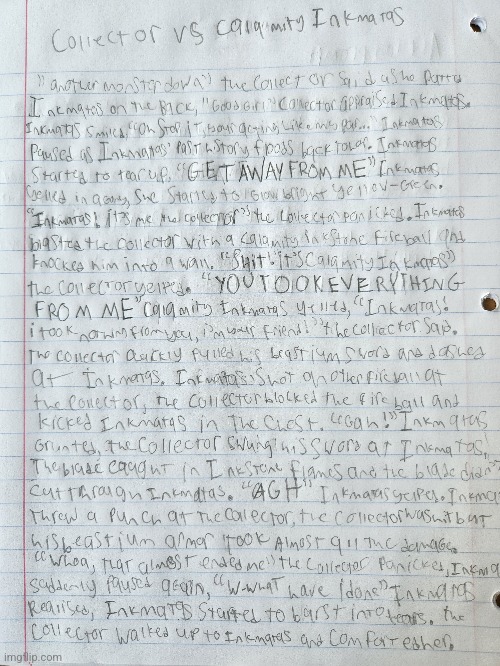 Collector vs Calamity Inkmatas
"another monster down" the Collector said as he patted
Inkmatas on the Back, "Good Girl" Collector appraised Inkmatas.
Inkmatas smiled, "Oh Stop it, your acting like my par..." Inkmatas
Paused as Inkmatas' Past history flashes back to her. Inkmatas
Started to tear up, "GET AWAY FROM ME" Inkmatas
yelled in agony, she started to Glow bright yellow-Green.
"Inkmatas! it's me the collector" the Collector panicked. Inkmatas
blasted the Collector with a calamity Inkstone fireball and
knocked him into a wall. "Shit! it's Calamity Inkmatas"
the Collector yelled. "YOU TOOK EVERYTHING
FROM ME" Calamity Inkmatas yelled, "Inkmatas!
i took nothing from you, i'm your friend!" the collector said.
The collector quickly pulled his beastium sword and dashed
at Inkmatas. Inkmatas shot another fireball at
the collector, the Collector blocked the fireball and
kicked Inkmatas in the Chest. "Gah!" Inkmatas
Grunted, the Collector swung his sword at Inkmatas,
The blade caught in Inkstone flames and the blade didn't
cut through Inkmatas. "AGH"
threw a punch at the Collector, the Collector was hit but
his beastium armor took Almost all the damage.
"Whoa, that almost ended me" the Collector Panicked, Inkma
suddenly Paused again, "W-what have I done" Inkmatas
Realised, Inkmatas Started to burst into tears. the
Collector walked up to Inkmatas and Comforted her.
imgflip.com